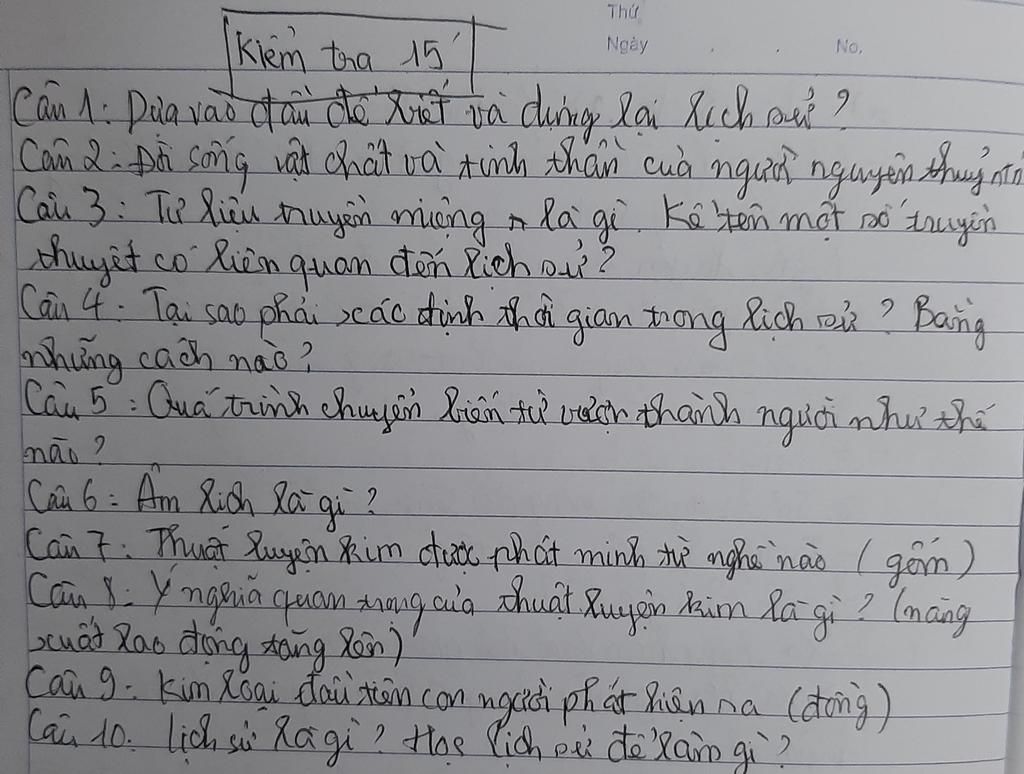 Thứ
Ngày . . No.
Kiểm tra 15'
Câu 1: Dựa vào đâu để biết và dựng lại lịch sử?
Câu 2: Đời sống vật chất và tinh thần của người nguyên thuỷ ntn
Câu 3: Tư liệu truyền miệng là gì. Kể tên một số truyền
thuyết có liên quan đến lịch sử?
Câu 4: Tại sao phải xác định thời gian trong lịch sử? Bằng
những cách nào?
Câu 5: Quá trình chuyển biến từ vượn thành người như thế
nào?
Câu 6: Âm lịch là gì?
Câu 7: Thuật luyện kim được phát minh từ nghề nào (gốm)
Câu 8: Ý nghĩa quan trọng của thuật luyện kim là gì? (năng
xuất lao động tăng lên)
Câu 9: Kim loại đầu tiên con người phát hiện ra (đồng)
Câu 10: Lịch sử là gì? Học lịch sử để làm gì?